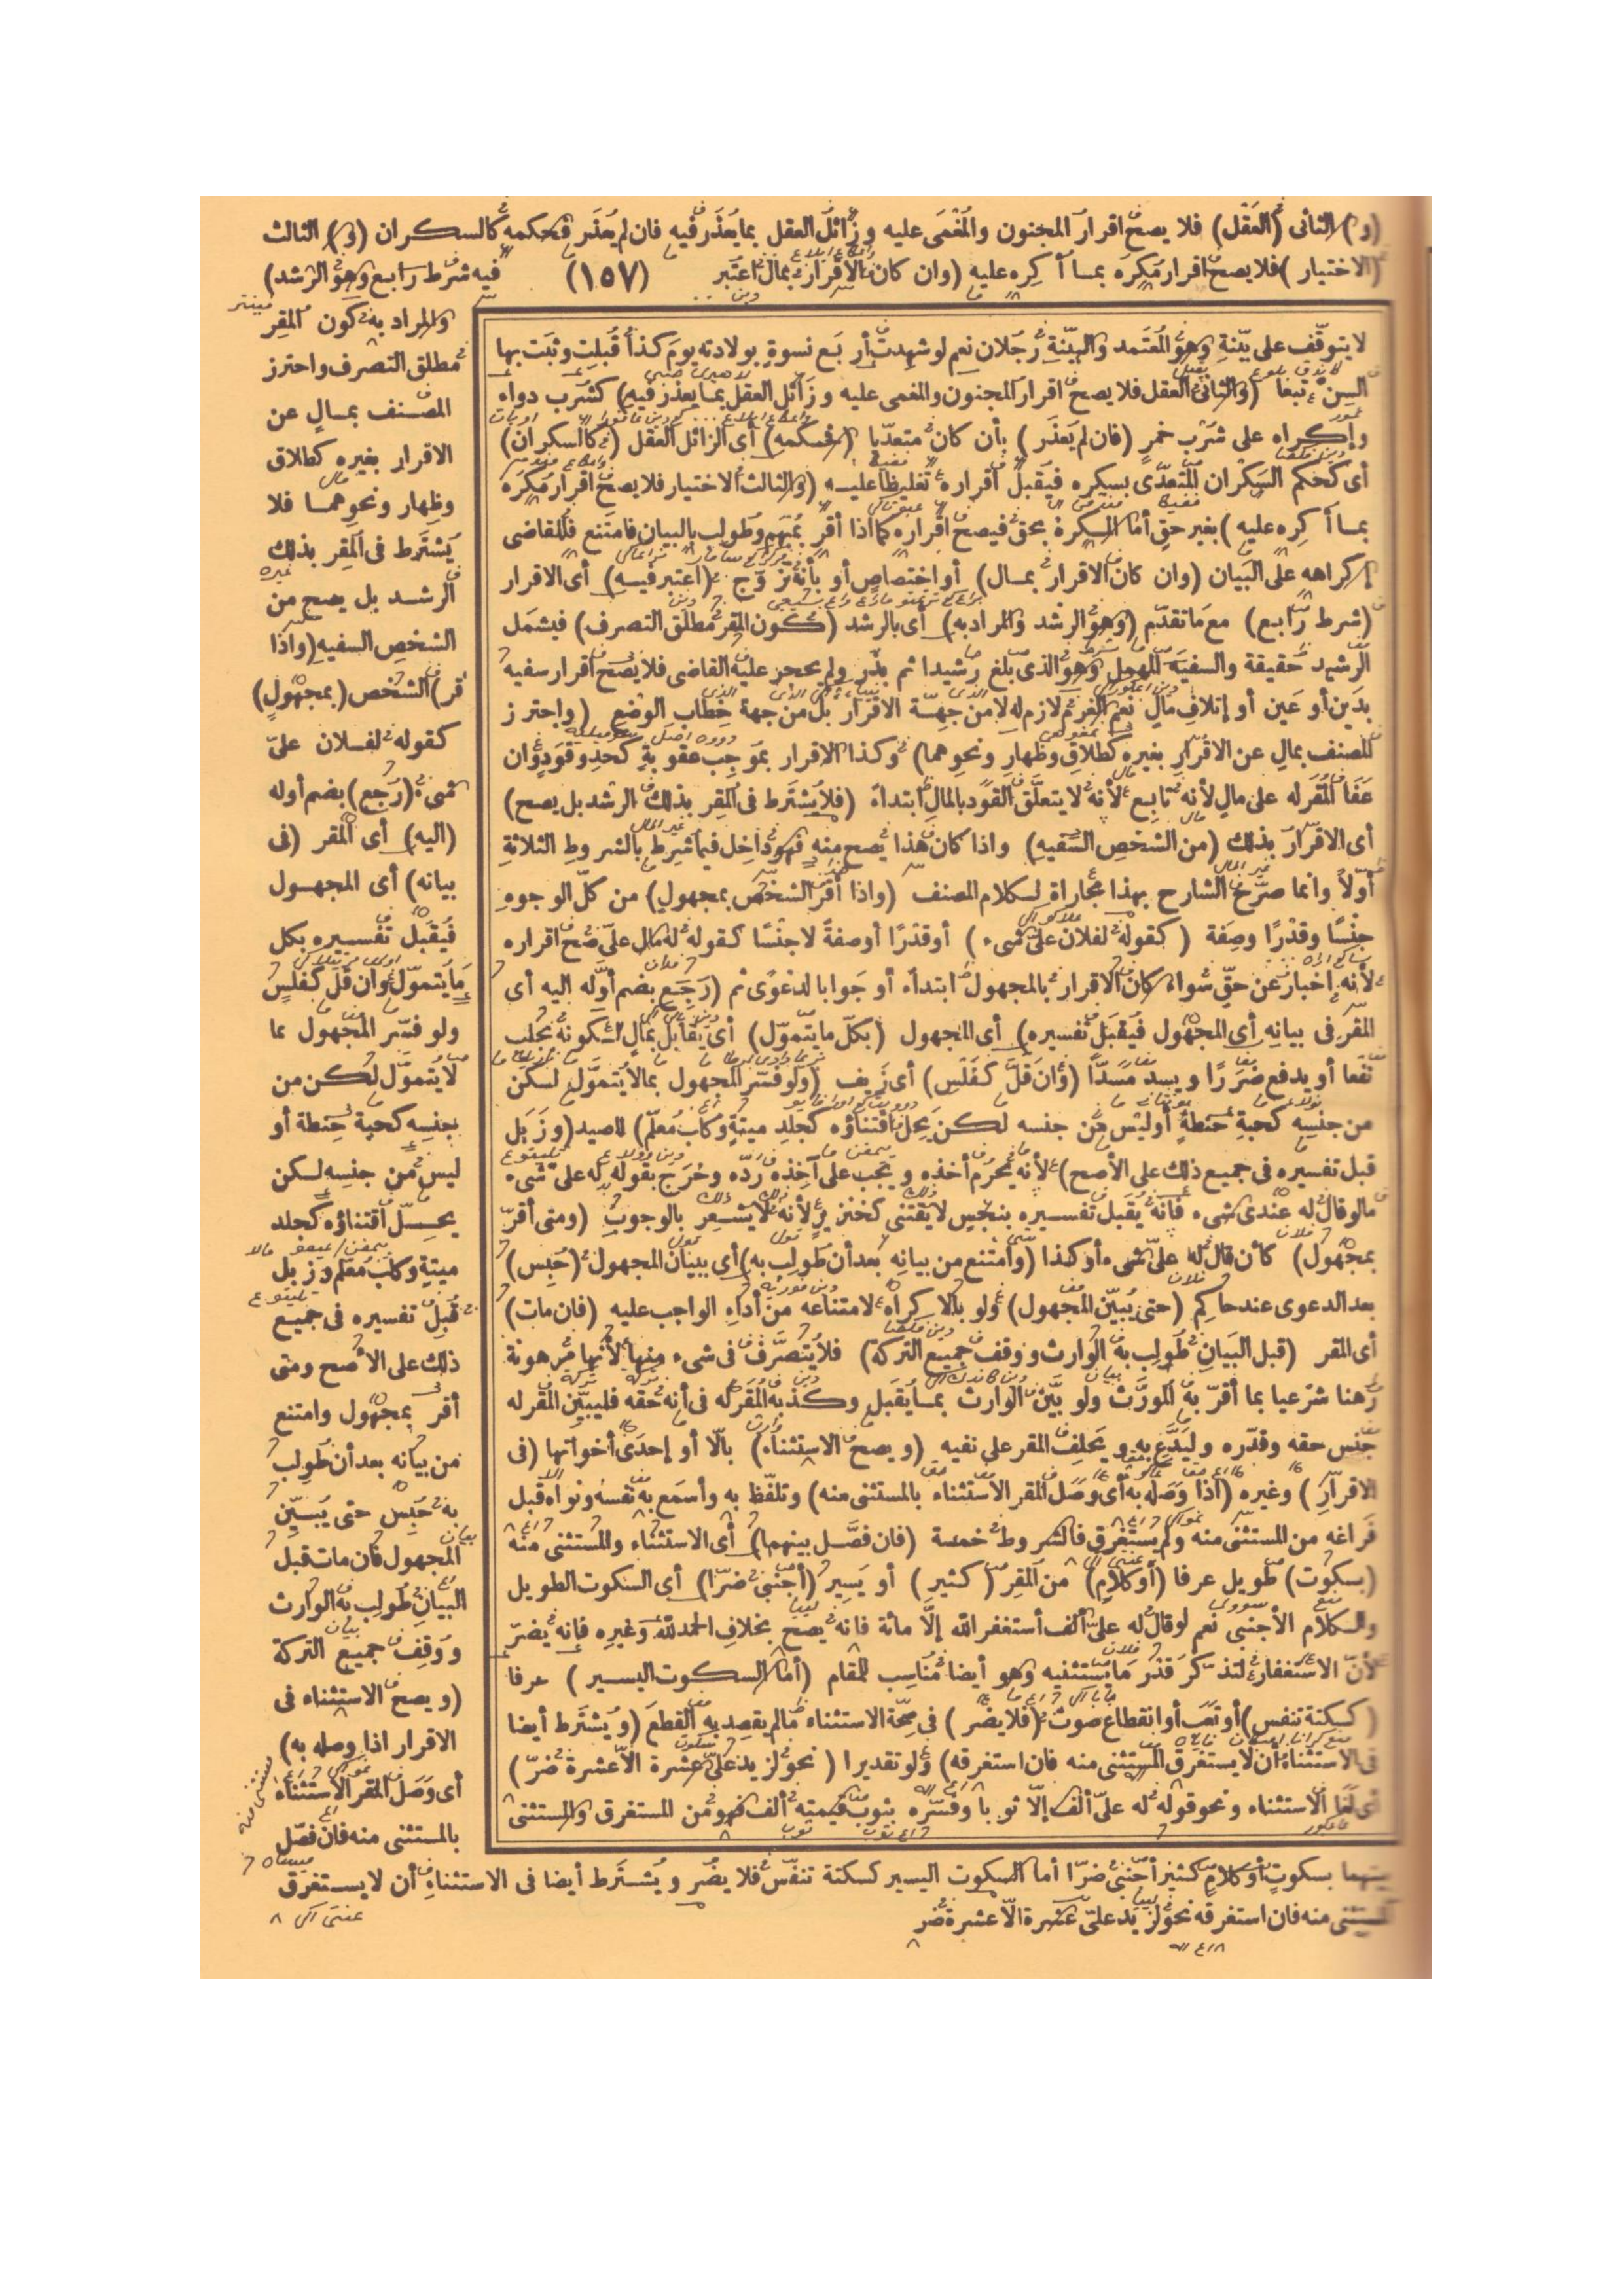 (و) الثانى (العقل) فلا يصح اقرار المجنون والمغمى عليه وزائل العقل بما يعذر فيه فان لم يعذر فحكمه كالسكران (و) الثالث
(الاختيار) فلا يصح اقرار مكره بما أكره عليه (وان كان الاقرار بمال اعتبر (١٥٧) فيه شرط رابع وهو الرشد)
والمراد به كون المقر
مطلق التصرف واحترز
المصنف بمال عن
الاقرار بغيره كطلاق
وظهار ونحوهما فلا
يشترط فى المقر بذلك
الرشد بل يصح من
الشخص السفيه (واذا
أقر) الشخص (بمجهول)
كقوله لفلان علىّ
شىء (رجع) بضم أوله
(اليه) أى المقر (فى
بيانه) أى المجهول
فيقبل تفسيره بكل
ما يتموّل وان قل كفلس
ولو فسر المجهول بما
لا يتموّل لكن من
جنسه كحبة حنطة أو
ليس من جنسه لكن
يحل اقتناؤه كجلد
ميتة وكلب معلم وزبل
قبل تفسيره فى جميع
ذلك على الأصح ومتى
أقر بمجهول وامتنع
من بيانه بعد أن طولب
به حبس حتى يبين
المجهول فان مات قبل
البيان طولب به الوارث
ووقف جميع التركة
(ويصح الاستثناء فى
الاقرار اذا وصله به)
أى وصل المقر الاستثناء
بالمستثنى منه فان فصل
بينهما بسكوت أو كلام كثير أجنبى ضرّا أما السكوت اليسير كسكتة تنفس فلا يضر ويشترط أيضا فى الاستثناء أن لا يستغرق
المستثنى منه فان استغرقه نحو لزيد علىّ عشرة الاّ عشرة ضر
لا يتوقف على بينة وهو المعتمد والبينة رجلان نعم لو شهدت أربع نسوة بولادته يوم كذا قبلت وثبت بها
السن تبعا (والثانى العقل فلا يصح اقرار المجنون والمغمى عليه وزائل العقل بما يعذر فيه) كشرب دواء
وإكراه على شرب خمر (فان لم يعذر) بأن كان متعدّيا (فحكمه) أى الزائل العقل (كالسكران)
أى كحكم السكران المتعدّى بسكره فيقبل اقراره تغليظا عليه (والثالث الاختيار فلا يصح اقرار مكره
بما أكره عليه) بغير حق أما المكره بحق فيصح اقراره كما اذا أقر بمبهم وطولب بالبيان فامتنع فللقاضى
إكراهه على البيان (وان كان الاقرار بمال) أو اختصاص أو بأنه زوّج (اعتبر فيه) أى الاقرار
(شرط رابع) مع ما تقدّم (وهو الرشد والمراد به) أى بالرشد (كون المقر مطلق التصرف) فيشمل
الرشيد حقيقة والسفيه المهمل وهو الذى بلغ رشيدا ثم بذر ولم يحجر عليه القاضى فلا يصح اقرار سفيه
بدين أو عين أو إتلاف مال نعم الغرم لازم له لا من جهة الاقرار بل من جهة خطاب الوضع (واحترز
المصنف بمال عن الاقرار بغيره كطلاق وظهار ونحوهما) وكذا الاقرار بموجب عقوبة كحد وقود وان
عفا المقر له على مال لأنه تابع لأنه لا يتعلق القود بالمال ابتداء (فلا يشترط فى المقر بذلك الرشد بل يصح)
أى الاقرار بذلك (من الشخص السفيه) واذا كان هذا يصح منه فهو داخل فيما شرط بالشروط الثلاثة
أوّلا وانما صرّح الشارح بهذا مجاراة لكلام المصنف (واذا أقر الشخص بمجهول) من كل الوجوه
جنسا وقدرا وصفة (كقوله لفلان علىّ شىء) أو قدرا أو صفة لا جنسا كقوله له مال علىّ صح اقراره
لأنه اخبار عن حق سواء كان الاقرار بالمجهول ابتداء أو جوابا لدعوى ثم (رجع بضم أوّله اليه أى
المقر فى بيانه أى المجهول فيقبل تفسيره) أى المجهول (بكل ما يتموّل) أى يقابل بمال لكونه يجلب
نفعا أو يدفع ضررا ويسد مسدّا (وان قل كفلس) أى زيف (ولو فسر المجهول بما لا يتموّل لكن
من جنسه كحبة حنطة أو ليس من جنسه لكن يحل اقتناؤه كجلد ميتة وكلب معلم) للصيد (وزبل
قبل تفسيره فى جميع ذلك على الأصح) لأنه يحرم أخذه ويجب على آخذه ردّه وخرج بقوله له على شىء
ما لو قال له عندى شىء فانه يقبل تفسيره بنجس لا يقتنى كخنزير لأنه لا يشعر بالوجوب (ومتى أقرّ
بمجهول) كأن قال له علىّ شىء أو كذا (وامتنع من بيانه بعد أن طولب به) أى ببيان المجهول (حبس)
بعد الدعوى عند حاكم (حتى يبين المجهول) ولو بالاكراه لامتناعه من أداء الواجب عليه (فان مات)
أى المقر (قبل البيان طولب به الوارث ووقف جميع التركة) فلا يتصرّف فى شىء منها لأنها مرهونة
رهنا شرعيا بما أقرّ به المورّث ولو بيّن الوارث بما يقبل وكذبه المقر له فى أنه حقه فليبيّن المقر له
جنس حقه وقدّره وليدّع به ويحلف المقر على نفيه (ويصح الاستثناء) بالّا أو إحدى أخواتها (فى
الاقرار) وغيره (اذا وصله به أى وصل المقر الاستثناء بالمستثنى منه) وتلفظ به وأسمع به نفسه ونواه قبل
فراغه من المستثنى منه ولم يستغرق فالشروط خمسة (فان فصل بينهما) أى الاستثناء والمستثنى منه
(بسكوت) طويل عرفا (أو كلام) من المقر (كثير) أو يسير (أجنبى ضرّا) أى السكوت الطويل
والكلام الأجنبى نعم لو قال له علىّ ألف أستغفر الله إلّا مائة فانه يصح بخلاف الحمد لله وغيره فإنه يضرّ
لأنّ الاستغفار لتذكر قدر ما يستثنيه وهو أيضا مناسب للمقام (أما السكوت اليسير) عرفا
(كسكتة تنفس) أو تعب أو انقطاع صوت (فلا يضر) فى صحة الاستثناء ما لم يقصد به القطع (ويشترط أيضا
فى الاستثناء أن لا يستغرق المستثنى منه فان استغرقه) ولو تقديرا (نحو لزيد علىّ عشرة الاّ عشرة ضرّ)
أى لغا الاستثناء ونحو قوله له علىّ ألف إلّا ثوبا وفسّره بثوب قيمته ألف فهو من المستغرق والمستثنى